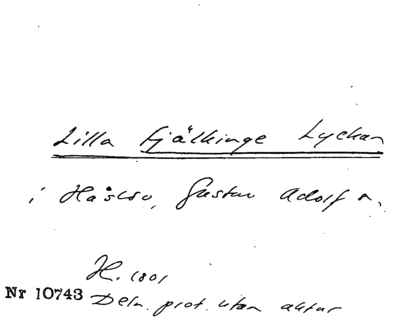 Lilla Fjälkinge Lyckan
i Håslöv, Gustav Adolf s.
H. 1801
Nr 10743 Deln. prot. utan aktnr